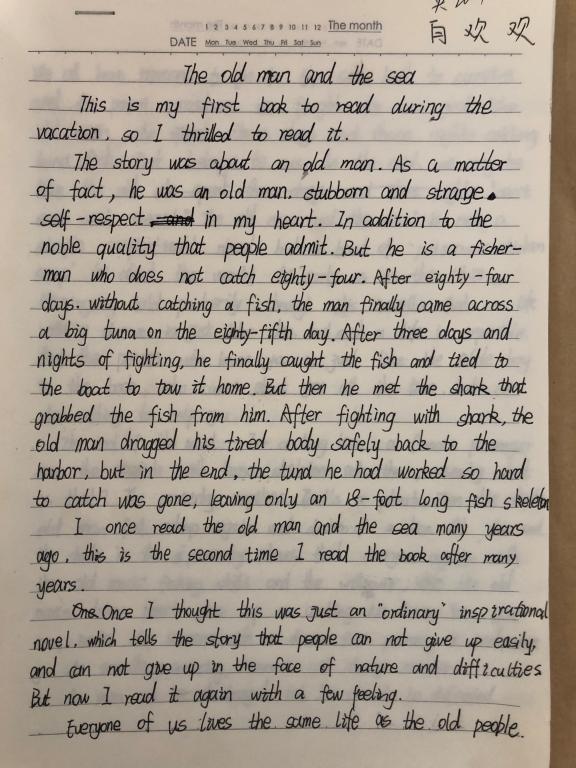 1 2 3 4 5 6 7 8 9 10 11 12 The month
DATE Mon Tue Wed Thu Fri Sat Sun
自欢欢
The old man and the sea
This is my first book to read during the
vacation, so I thrilled to read it.
The story was about an old man. As a matter
of fact, he was an old man. stubborn and strange.
self-respect and in my heart. In addition to the
noble quality that people admit. But he is a fisher-
man who does not catch eighty-four. After eighty-four
days. without catching a fish, the man finally came across
a big tuna on the eighty-fifth day. After three days and
nights of fighting, he finally caught the fish and tied to
the boat to tow it home. But then he met the shark that
grabbed the fish from him. After fighting with shark, the
old man dragged his tired body safely back to the
harbor, but in the end, the tuna he had worked so hard
to catch was gone, leaving only an 18-foot long fish skeleton
I once read the old man and the sea many years
ago, this is the second time I read the book after many
years.
One Once I thought this was just an "ordinary" inspirational
novel, which tells the story that people can not give up easily,
and can not give up in the face of nature and difficulties
But now I read it again with a few feeling.
Everyone of us lives the same life as the old people.